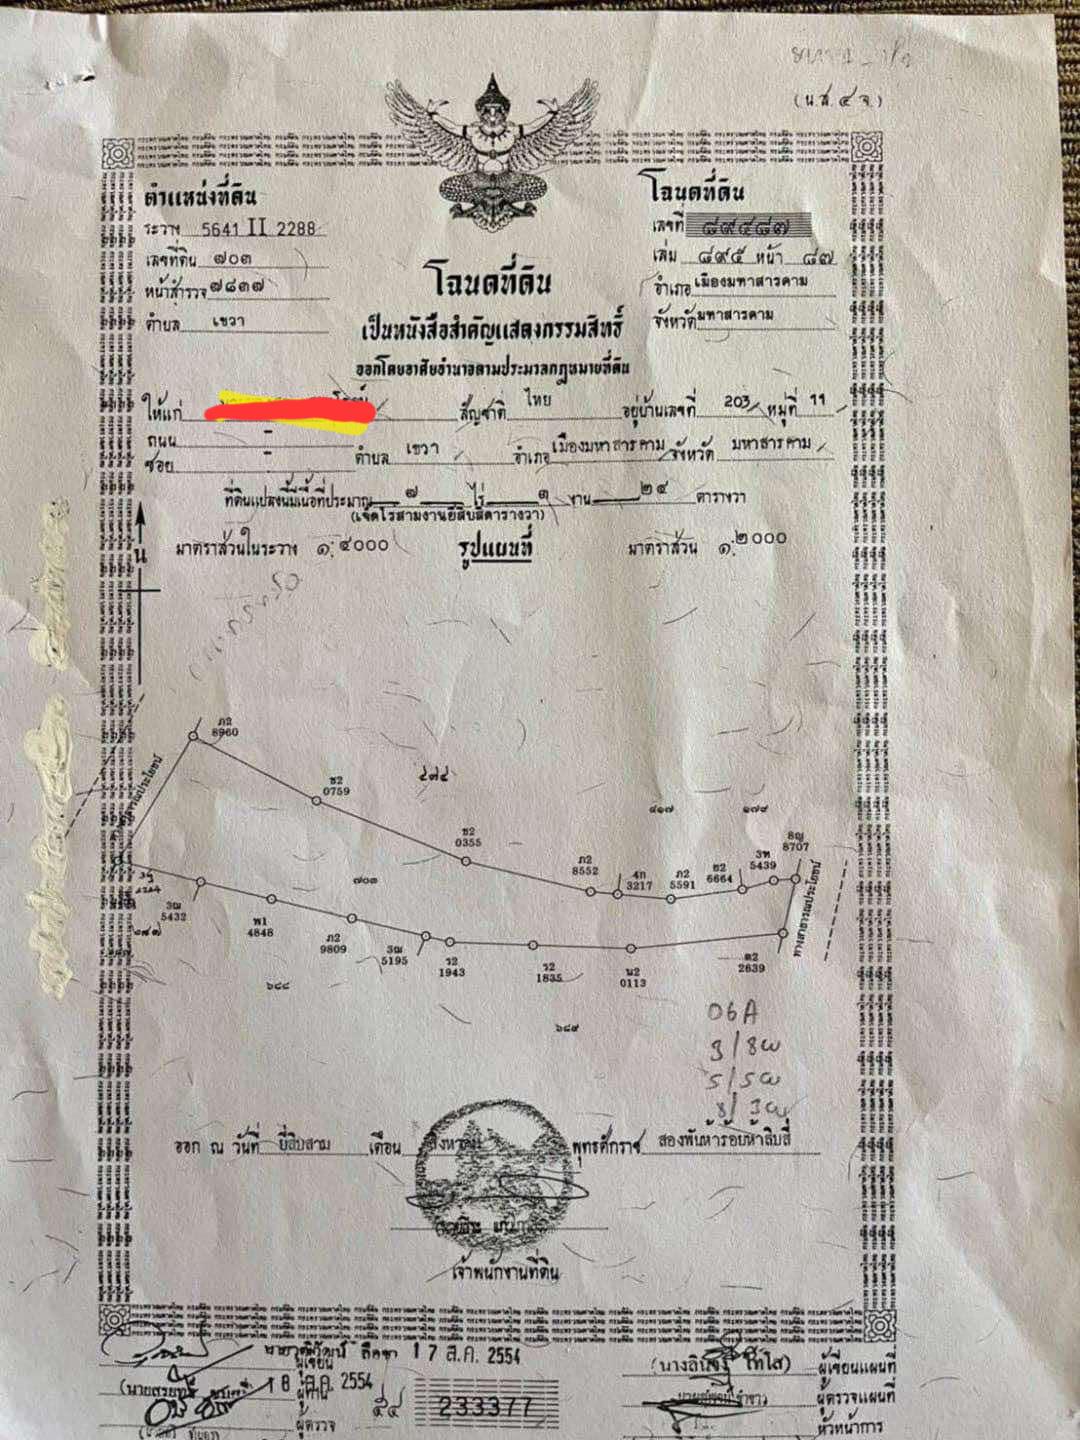 (น.ส.๔ จ.)
ตำแหน่งที่ดิน
ระวาง 5641 II 2288
เลขที่ดิน ๗๐๓
หน้าสำรวจ ๗๘๓๗
ตำบล เขวา
โฉนดที่ดิน
เลขที่ ๘๙๔๘๗
เล่ม ๘๙๕ หน้า ๘๗
อำเภอ เมืองมหาสารคาม
จังหวัด มหาสารคาม
โฉนดที่ดิน
เป็นหนังสือสำคัญแสดงกรรมสิทธิ์
ออกโดยอาศัยอำนาจตามประมวลกฎหมายที่ดิน
ให้แก่ สัญชาติ ไทย อยู่บ้านเลขที่ 203 หมู่ที่ 11
ถนน -
ซอย - ตำบล เขวา อำเภอ เมืองมหาสารคาม จังหวัด มหาสารคาม
ที่ดินแปลงนี้มีเนื้อที่ประมาณ ๗ ไร่ ๓ งาน ๒๔ ตารางวา
(เจ็ดไร่สามงานยี่สิบสี่ตารางวา)
มาตราส่วนในระวาง ๑:๔๐๐๐ รูปแผนที่ มาตราส่วน ๑:๒๐๐๐
น
ภ2
8960
ข2
0759
ข2
0355
๔๑๗
๑๗๙
8ญ
8707
3ท
5439
ข2
6664
ภ2
5591
4ก
3217
ภ2
8552
๗๐๓
3ฒ
5432
พ1
4848
ภ2
9809
3ฒ
5195
ว2
1943
ว2
1835
น2
0113
ต2
2639
ทางสาธารณประโยชน์
๖๘๘
๖๘๙
06A
ออก ณ วันที่ ยี่สิบสาม เดือน สิงหาคม พุทธศักราช สองพันห้าร้อยห้าสิบสี่
เจ้าพนักงานที่ดิน
17 ส.ค. 2554
ผู้เขียน
ผู้เขียนแผนที่
18 ส.ค. 2554
ผู้ทาน
ผู้ตรวจแผนที่
ผู้ตรวจ
๕๔
233377
หัวหน้าการ